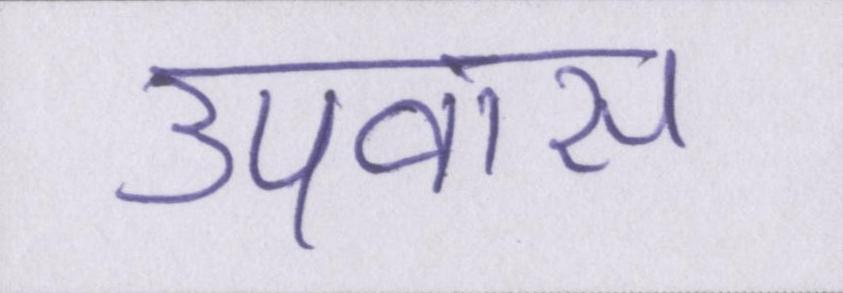 उपवास